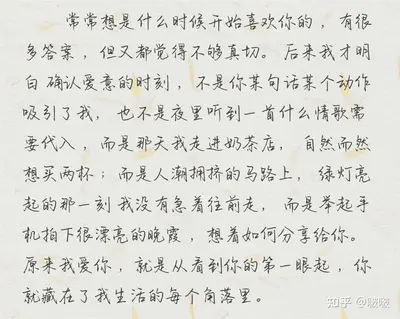 常常想是什么时候开始喜欢你的，有很
多答案，但又都觉得不够真切。后来我才明
白 确认爱意的时刻，不是你某句话某个动作
吸引了我，也不是夜里听到一首什么情歌需
要代入，而是那天我走进奶茶店，自然而然
想买两杯；而是人潮拥挤的马路上，绿灯亮
起的那一刻 我没有急着往前走，而是举起手
机拍下很漂亮的晚霞，想着如何分享给你。
原来我爱你，就是从看到你的第一眼起，你
就藏在了我生活的每个角落里。
知乎 @暖暖